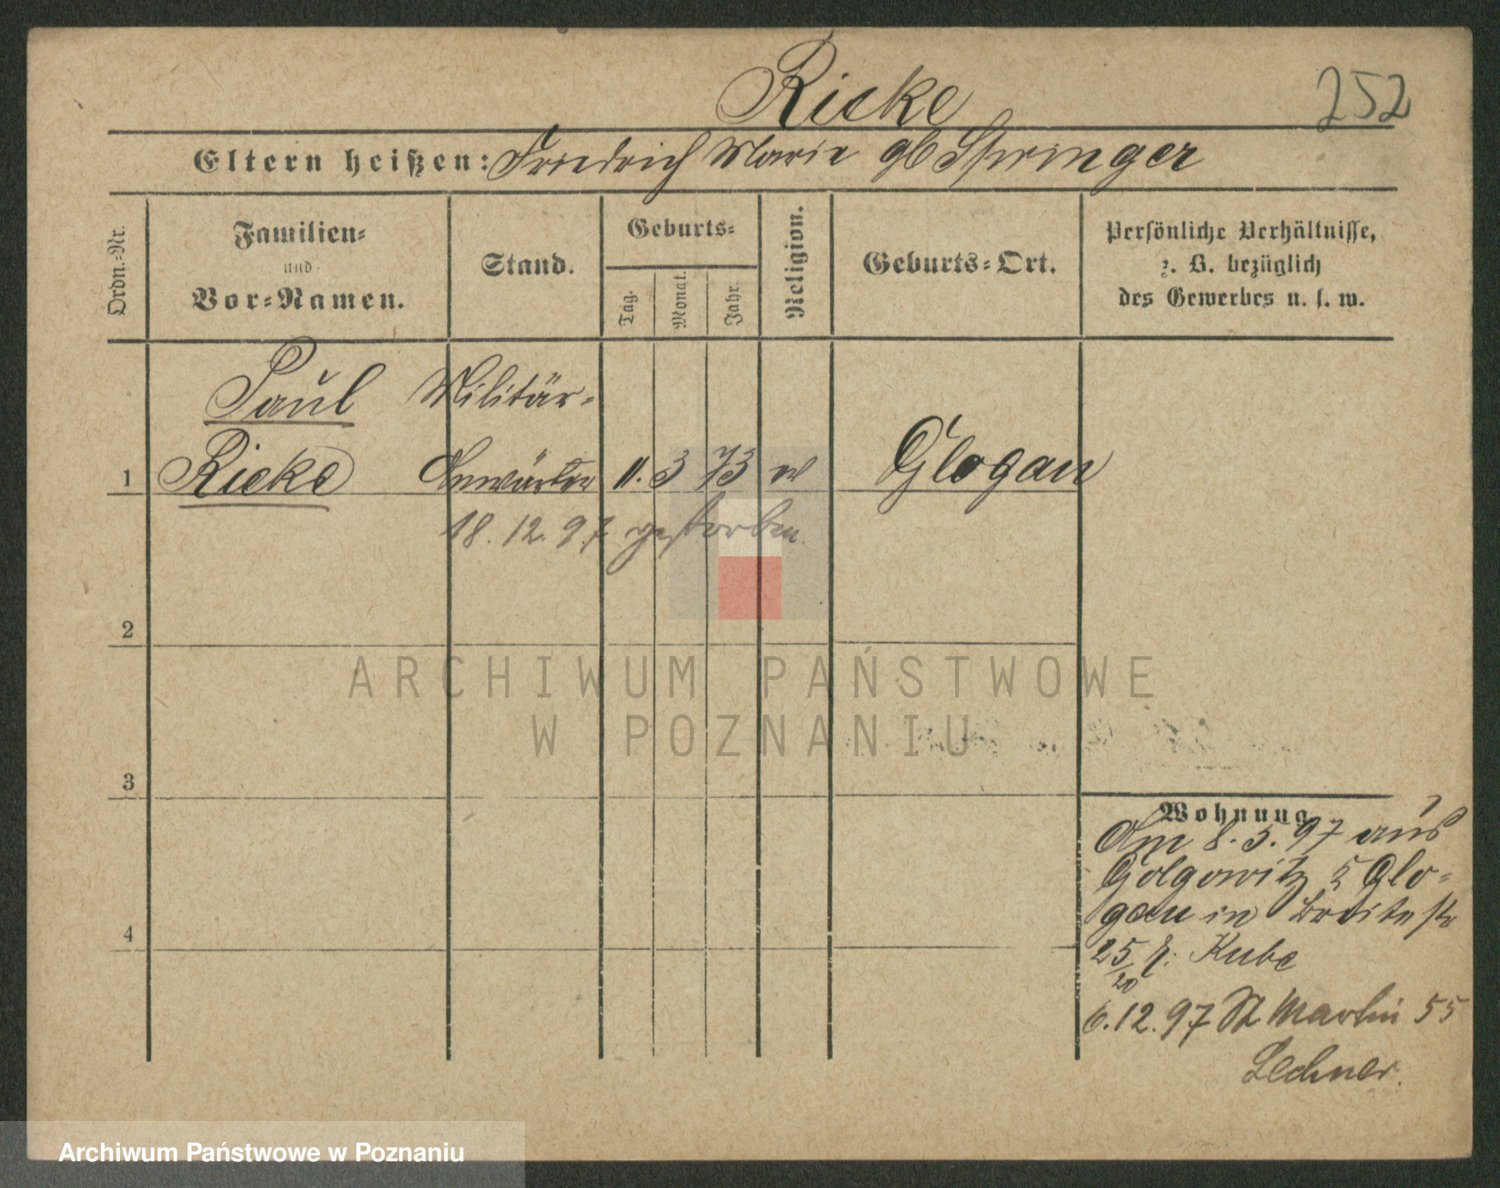 Ricke
252
Eltern heißen: Friedrich Marie gb Springer
Ordn.-Nr.
Familien-
und
Vor-Namen.
Stand.
Geburts-
Tag.
Monat.
Jahr.
Religion.
Geburts-Ort.
Persönliche Verhältnisse,
z. B. bezüglich
des Gewerbes u. s. w.
Paul Militär-
1 Ricke Anwärter 11. 3 73 Glogau
18. 12. 97 gestorben.
2
ARCHIWUM PAŃSTWOWE
W POZNANIU
3
Wohnung
Am 8. 5. 97 aus
Golgowitz Glo-
gau in Breitestr
25 Kube
20
6. 12. 97 St Martin 55
Lechner.
4
Archiwum Państwowe w Poznaniu